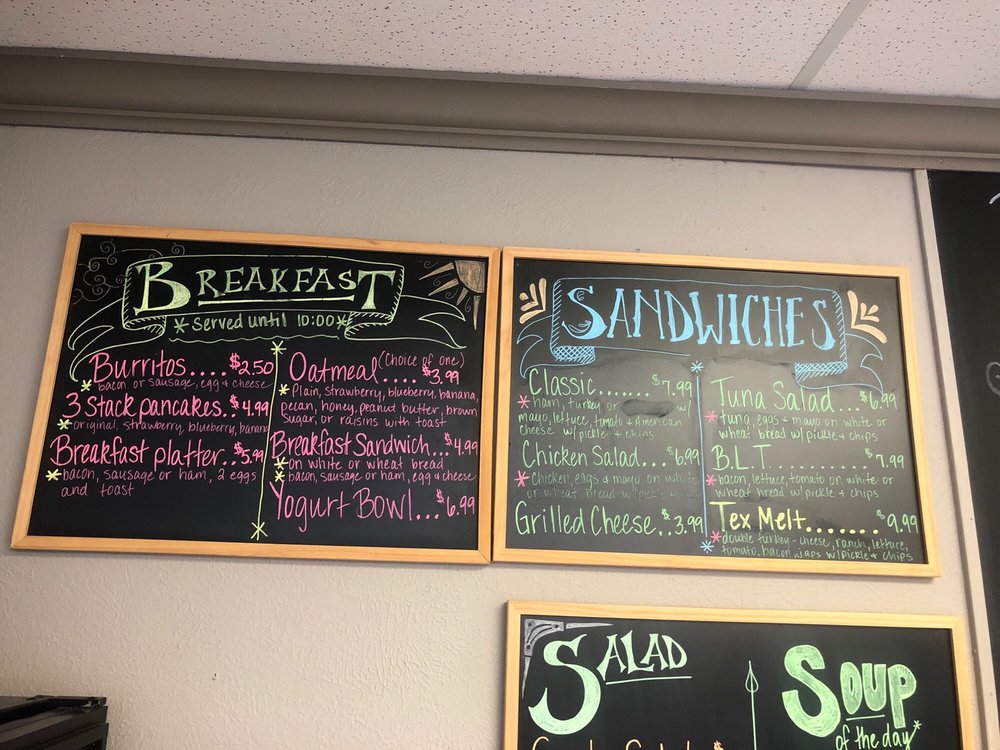 BREAKFAST
*Served until 10:00*
Burritos.... $2.50
*bacon or sausage, egg & cheese
3 Stack pancakes.. $4.99
*original, strawberry, blueberry, banana
Breakfast platter.. $5.99
*bacon, sausage or ham, 2 eggs
and toast
Oatmeal (Choice of one)
.... $3.99
*Plain, strawberry, blueberry, banana,
pecan, honey, peanut butter, brown
sugar, or raisins with toast
Breakfast Sandwich... $4.99
*on white or wheat bread
*bacon, sausage or ham, egg & cheese
Yogurt Bowl... $6.99
SANDWICHES
Classic....... $7.99
*ham, turkey or w/
mayo, lettuce, tomato & American
cheese w/ pickle & chips
Chicken Salad... $6.99
*Chicken, eggs & mayo on white
or wheat bread w/
Grilled Cheese.. $3.99
Tuna Salad... $6.99
*tuna, eggs & mayo on white or
wheat bread w/ pickle & chips
B.L.T.......... $7.99
*bacon, lettuce, tomato on white or
wheat bread w/ pickle & chips
Tex Melt....... $9.99
*double turkey - cheese, ranch, lettuce,
*tomato, bacon, japs w/ pickle & chips
SALAD
Soup
of the day*